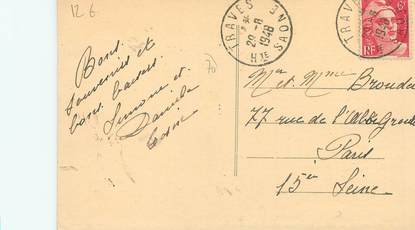 12.6
Bons
souvenirs et
bons baisers
Simone et
Daniele
70
TRAVES
29-8
1948
Hte SAONE
TRAVES
1948
SAONE
RF
Mr et Mme
77 rue de l'Abbé Groult
Paris
15e Seine